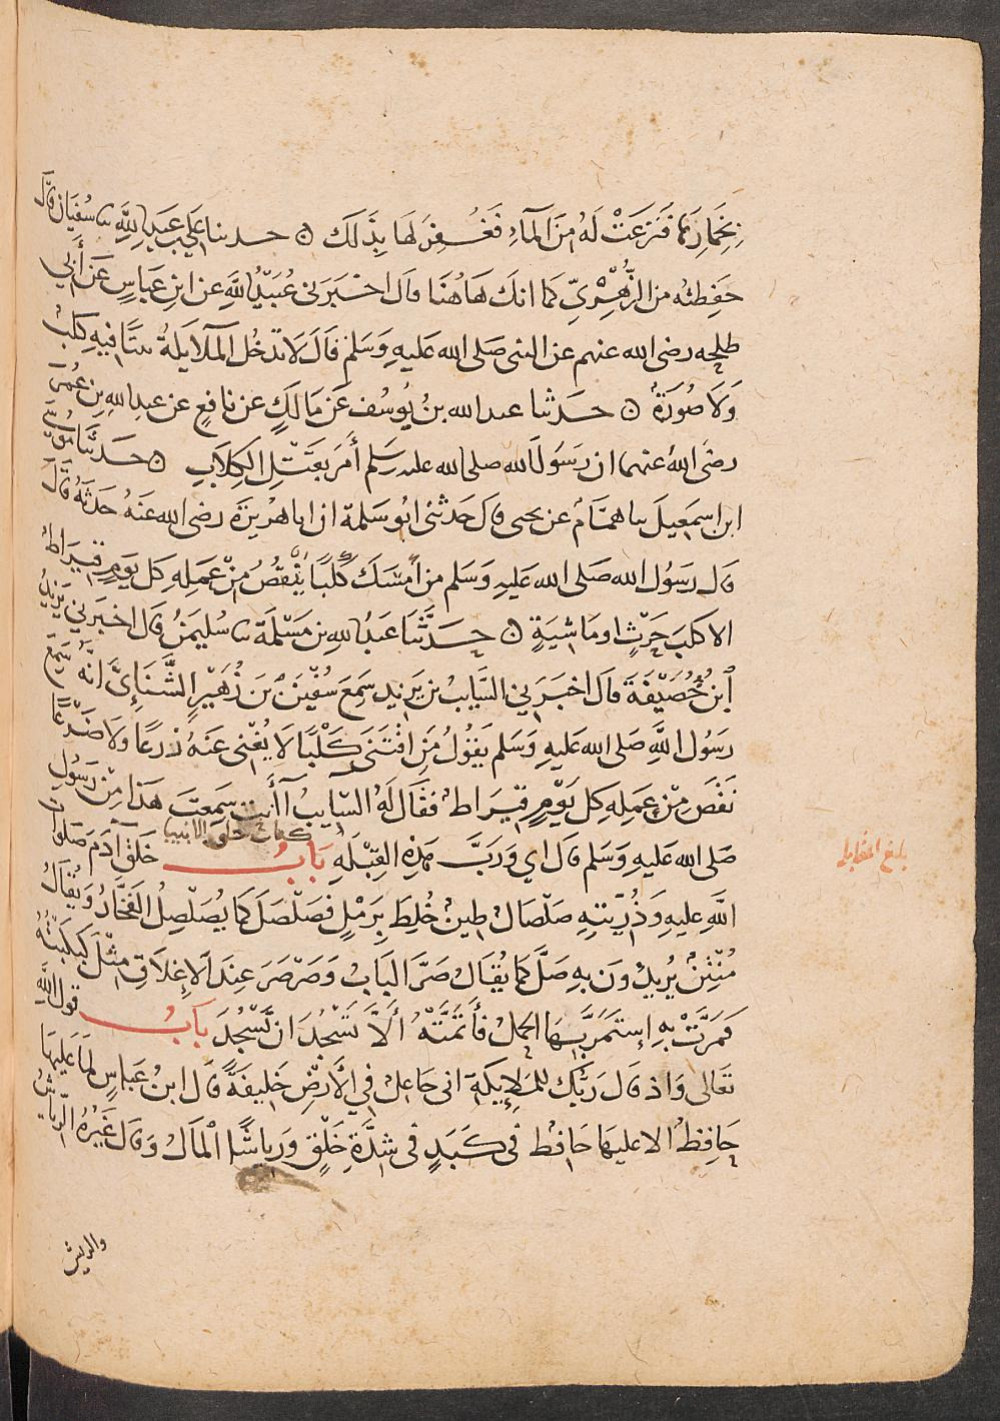 بِخِمَارِهَا فَنَزَعَتْ لَهُ مِنَ الْمَاءِ فَغُفِرَ لَهَا بِذَلَكَ ۞ حدثنا علي بن عبد اللَّهِ ثنا سُفْيَان قَالَ
حفِظتُه من الزُّهْرِيّ كما انكَ هَاهُنَا قال اخْبَرَني عُبَيْدُ اللَّهِ عن ابنِ عَباسٍ عَنْ أَبي
طلحه رضى الله عنهم عن النبى صَلى الله عَليهِ وَسَلم قَالَ لاَ تدْخُل الْمَلَايِكةُ بيتًا فيهِ كلبٌ
وَلاَ صُورَةٌ ۞ حَدثنا عبد الله بنُ يُوسُف عَن مَالكٍ عن نافعٍ عن عبدِ اللهِ بن عُمَرَ
رضى اللهُ عنهما ان رسَوُلَ الله صلى الله عليه وسلم أَمَرَ بقَتْلِ الكِلَابِ ۞ حدثنا مُوسَى
ابن اسمَعِيلَ ثنا همَّامٌ عن يحيى قال حَدثنى ابُو سَلمة ان ابا هُرَيرَة رضى الله عَنهُ حَدثهُ قَالَ
قال رسَوُل الله صَلى الله عَليهِ وَسَلم من أمْسَكَ كَلبًا يَنْقُصُ مِنْ عَمَلِهِ كل يَوْمٍ قِيرَاطٌ
الا كلبَ حَرْثٍ او مَاشِيَةٍ ۞ حَدَّثنَا عَبدُ اللهِ بن مَسْلمَةَ ثنا سُليمَنُ قال اخبَرَني يَزيدُ
ابنُ خُصَيْفَةَ قال اخبَرَني السَّايبُ بن يَزيد سَمِعَ سُفْيَنَ بنَ زُهَيْرٍ الشَّنَاِئيَّ انَّه سَمِعَ
رسَوُلَ اللَّهِ صَلى الله عَليهِ وَسَلم يقوُلُ مَنِ اقْتَنَى كَلْبًا لا يُغْنى عَنهُ زرعًا ولا ضَرْعًا
نَقَصَ مِنْ عِمَلِهِ كل يَوْمٍ قِيرَاطٌ فقَال لَهُ السَّايبُ آأَنت سَمِعتَ هَذَا مِنْ رسَوُلِ
كتاب خلق الانبيا
صَلى الله عَليهِ وَسَلم قال اي وَرَبِّ هَذِهِ القِبْلَهِ بَابُ خَلقِ آدَمَ صَلَوَاتُ
اللَّهِ عليهِ وَذُرِّيَّتِهِ صَلْصَالٌ طِينٌ خُلِطَ بِرَمْلٍ فصَلْصَلَ كما يُصَلْصِلُ الفَخَّارُ وَيُقَالُ
مُنْتِنٌ يُرِيدُونَ بِهِ صَلَّ كما يُقَالُ صَرَّ البَابُ وَصَرْصَرَ عِندَ الاِغْلَاقِ مِثْلُ كَبْكَبْتُهُ
فمَرَّتْ بِهِ إِستمَرَّ بِهَا الحمْلُ فَأَتَمَّتْهُ أَلاَّ تَسْجُدَ ان تَسْجُدَ بَابُ قول اللَّهِ
تعَالى وَاذ قَالَ رَبُّكَ للملاِيكَةِ انى جَاعِلٌ فِي الْأَرْضِ خَلِيفَةً قَالَ ابنُ عَباسٍ لَمَّا عَليهَا
حَافِظٌ الا عليهَا حَافظ فى كَبَدٍ فى شِدَّةِ خَلْقٍ وَرِياشًا الْمَالُ وَقال غَيْرُهُ الرِّيَاشُ
والريش
بلغ مقابله